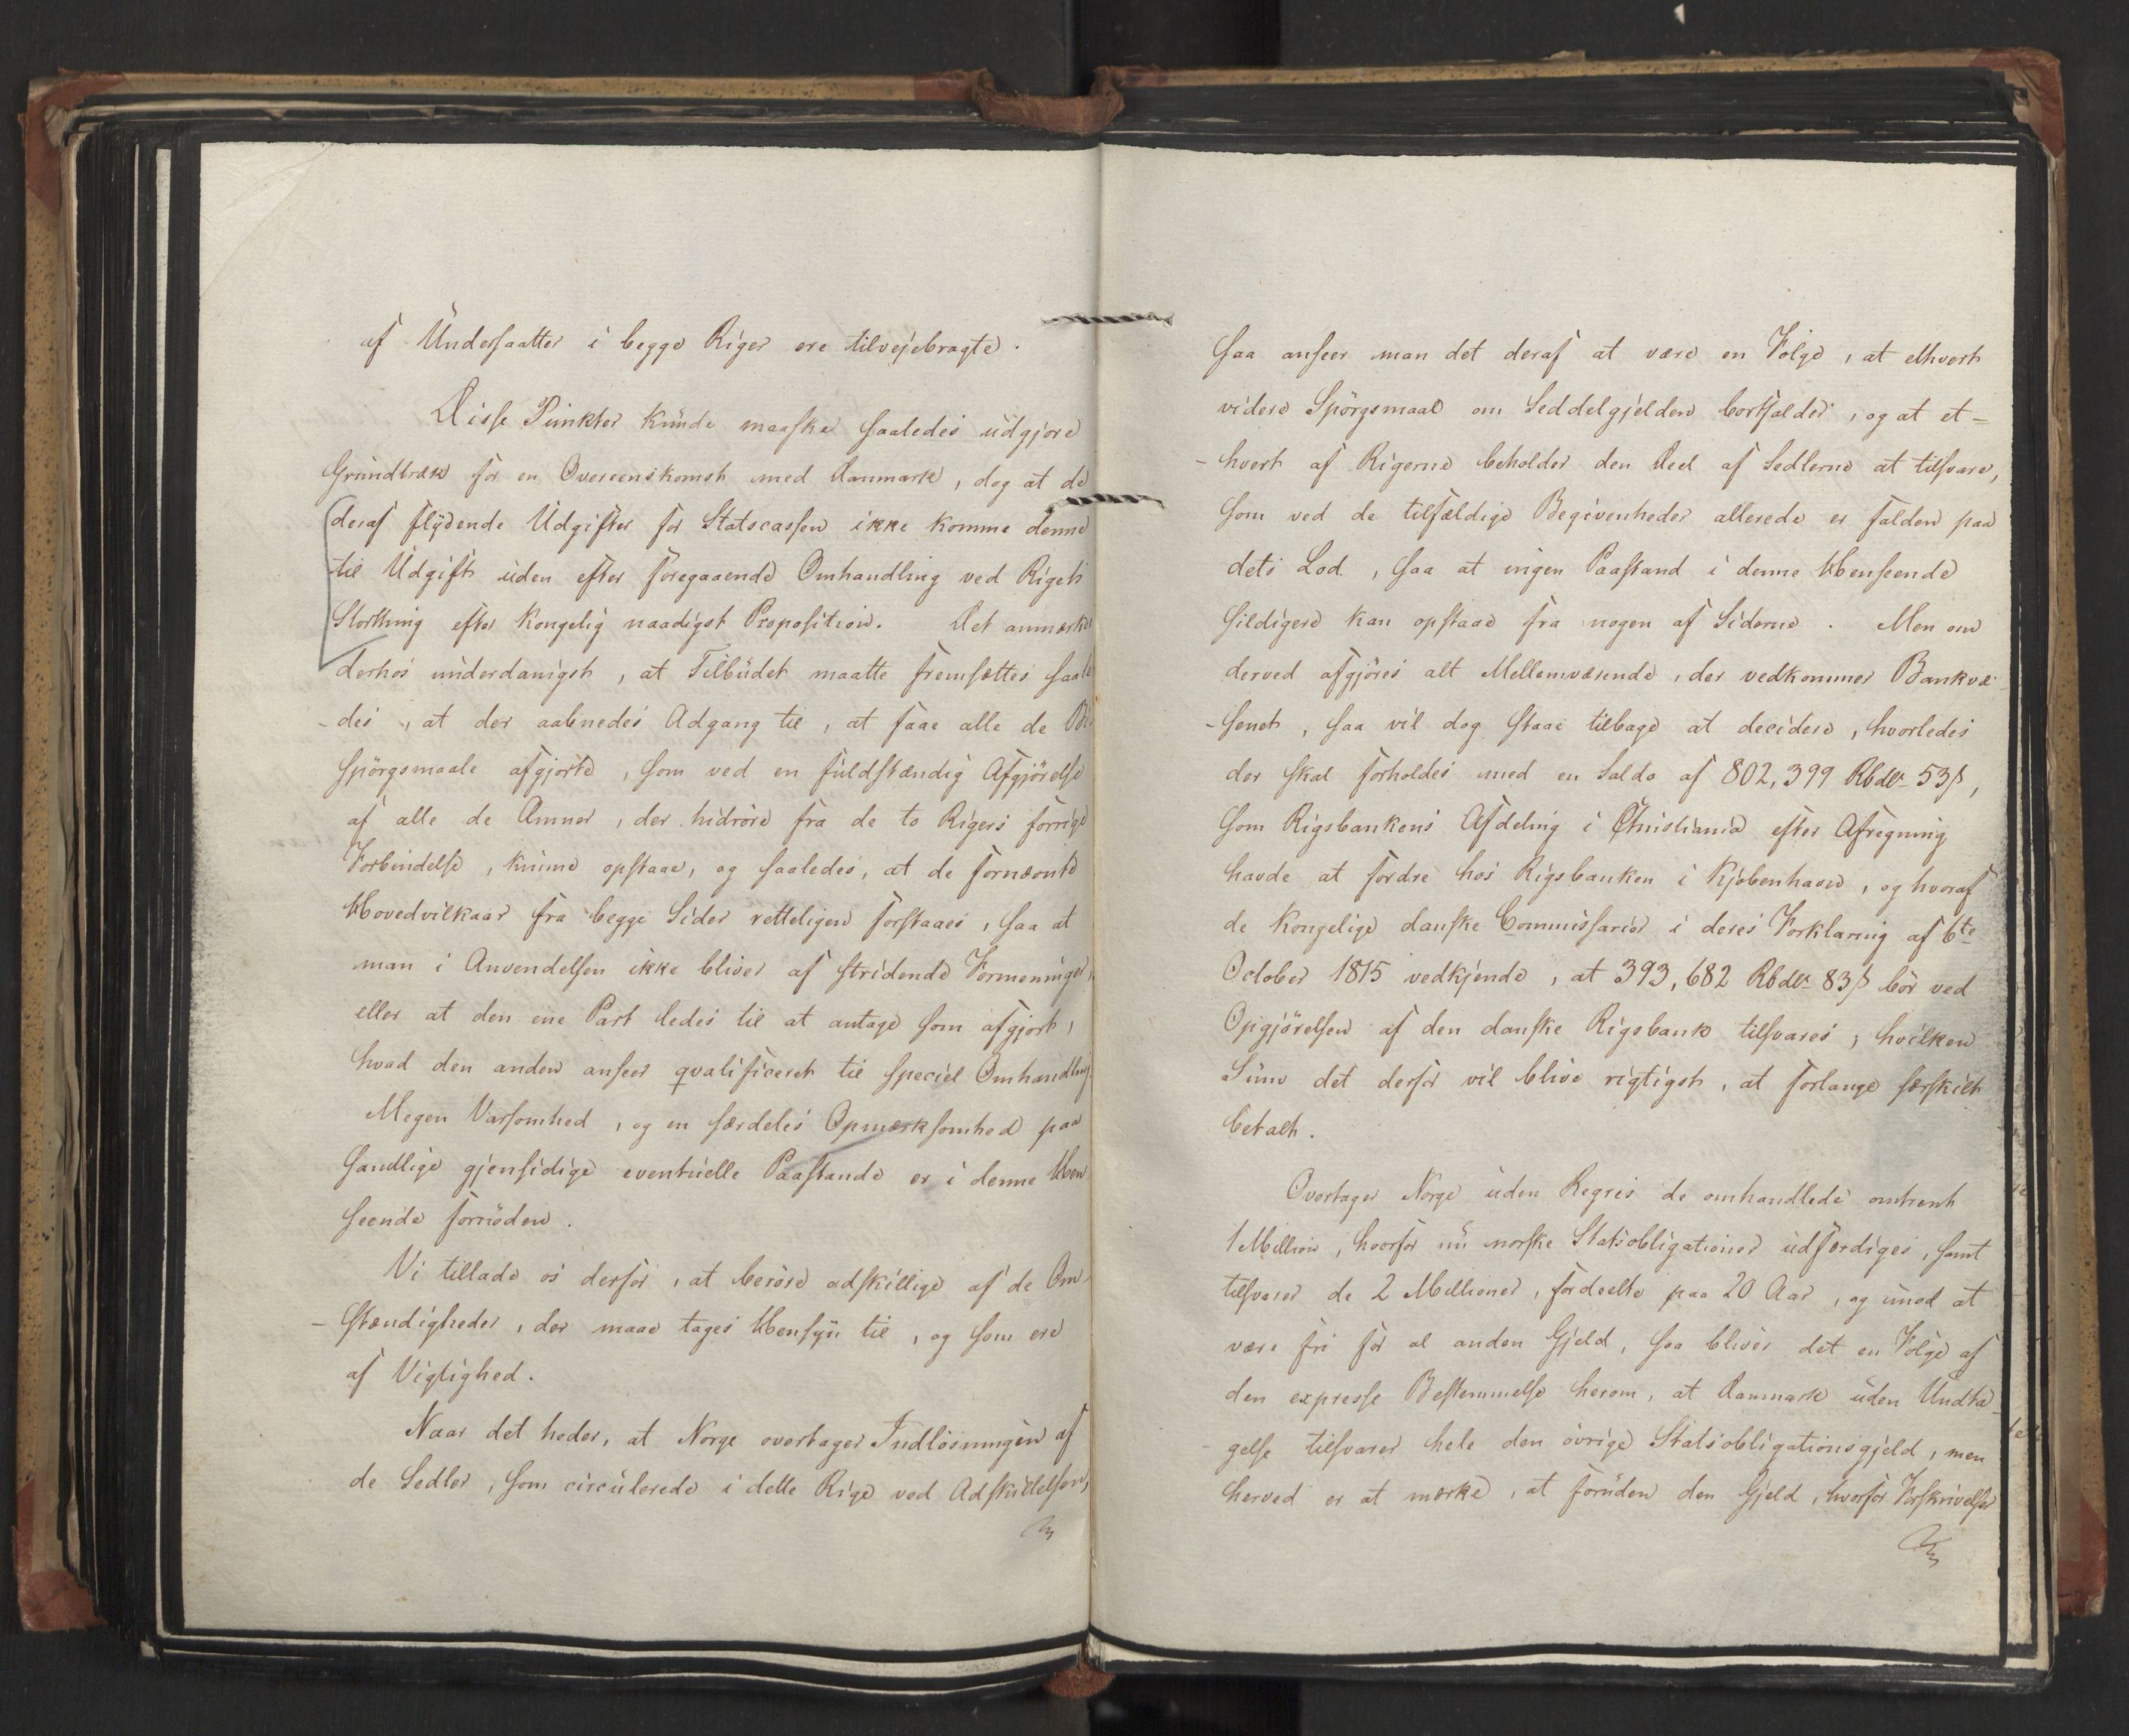 af Undersaatter i begge Riger ere tilvejebragte.
Disse Punkter kunde maaske saaledes udgjøre
Grundtræk for en Overeenskomst med Danmark, dog at de
deraf flydende Udgifter for Statscassen ikke komme denne
til Udgift uden efter foregaaende Omhandling ved Rigets
Storthing efter Kongelig naadigst Proposition. Det anmærkes
derhos underdanigst, at Tilbudet maatte fremsættes saale
-des, at der aabnedes Adgang til, at faae alle de Bi
spørgsmaale afgjorte, som ved en fuldstændig Afgjørelse
af alle de Æmner, der hidrøre fra de to Rigers forrige
Forbindelse, kunne opstaae, og saaledes, at de fornævnte
Hovedvilkaar fra begge Sider retteligen forstaaes, saa at
man i Anvendelsen ikke bliver af stridende Formeninger,
eller at den ene Part ledes til at antage som afgjort,
hvad den anden anseer qvalificeret til speciel Omhandling.
Megen Varsomhed, og en særdeles Opmærksomhed paa
sandlige gjensidige eventuelle Paastande er i denne Hen
seende fornøden.
Vi tillade os derfor, at berøre adskillige af de Om-
-stændigheder, der maae tages Hensyn til, og som ere
af Vigtighed.
Naar det heder, at Norge overtager Indløsningen af
de Sedler, som circulerede i dette Rige ved Adskillelsen,
saa anseer man det deraf at være en Følge, at ethvert
videre Spørgsmaal om Seddelgjelden bortfalder, og at et-
-hvert af Rigerne beholder den Deel af Sedlerne at tilsvare,
som ved de tilfældige Begivenheder allerede er falden paa
dets Lod, saa at ingen Paastand i denne Henseende
sildigere kan opstaae fra nogen af Siderne. Men om
derved afgjøres alt Mellemværende, der vedkommer Bankvæ-
-senet, saa vil dog staae tilbage at decidere, hvorledes
der skal forholdes med en Saldo af 802,399 Rbdlr 53ß,
som Rigsbankens Afdeling i Christiania efter Afregning
havde at fordre hos Rigsbanken i Kjøbenhavn, og hvoraf
de Kongelige danske Commissarier i deres Forklaring af 6te
October 1815 vedkjende, at 393,682 Rbdlr 83ß bør ved
Opgjørelsen af den danske Rigsbank tilsvares; hvilken
Sum det derfor vil blive rigtigst, at forlange særskilt
betalt.
Overtager Norge uden Regres de omhandlede omtrent
1 Million, hvorfor nu norske Statsobligationer udfærdiges, samt
tilsvarer de 2 Millioner, fordeelte paa 20 Aar, og imod at
være fri for al anden Gjeld, saa bliver det en Følge af
den expresse Bestemmelse herom, at Danmark uden Undta-
-gelse tilsvarer hele den øvrige Statsobligationsgjeld, men
herved er at mærke, at foruden den Gjeld, hvorfor Forskrivelser